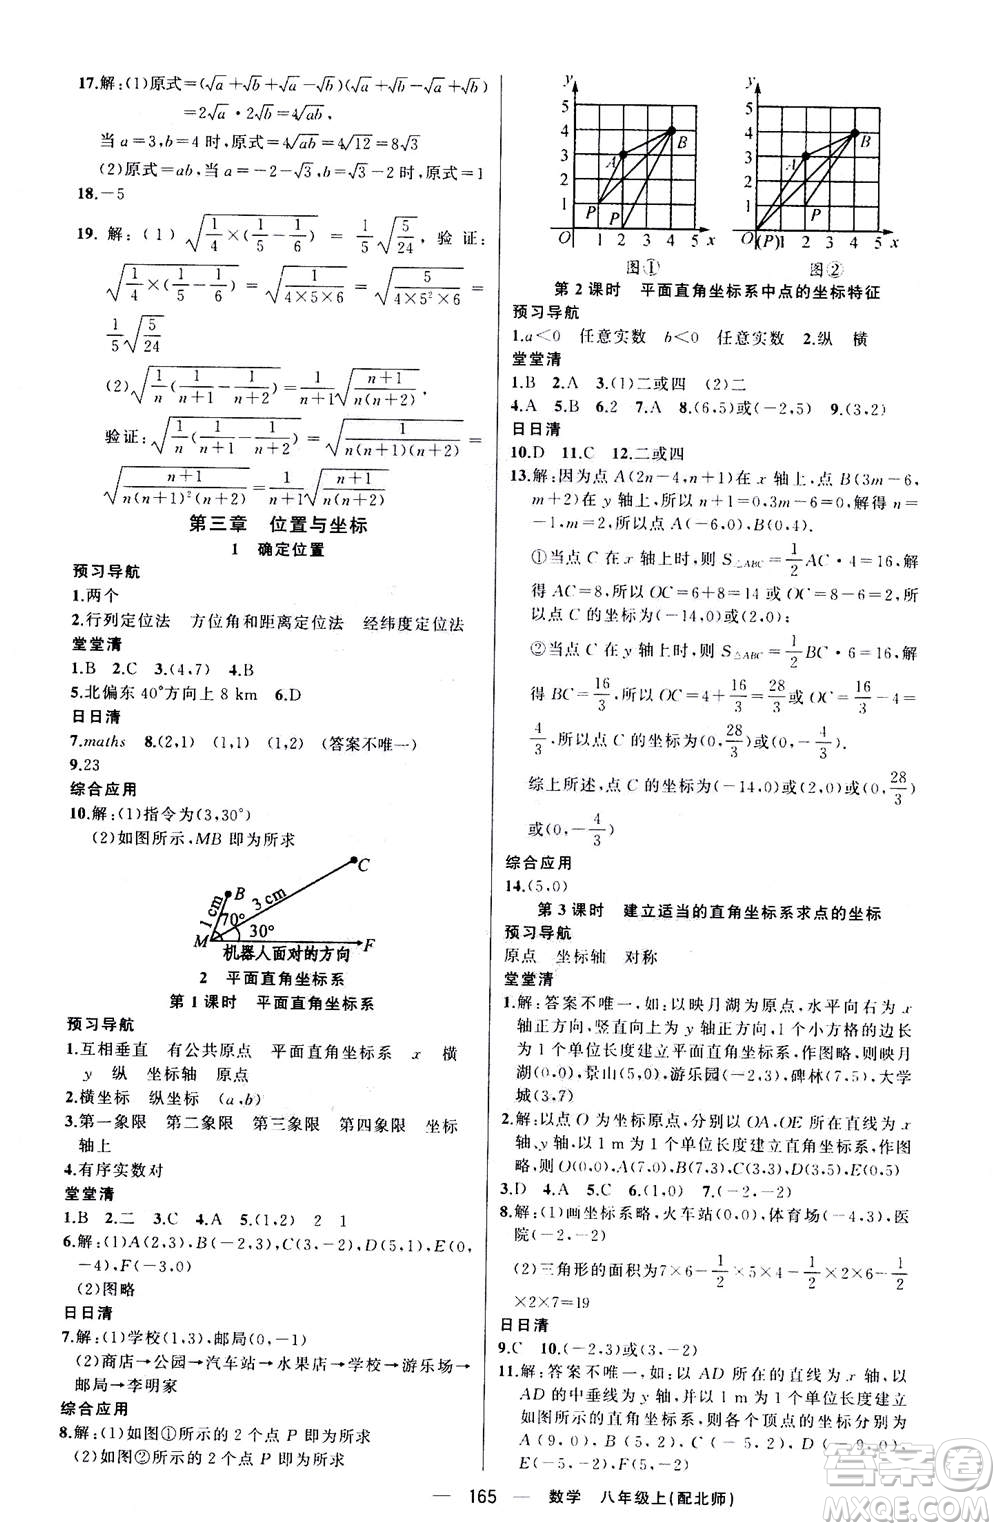 17.解:(1)原式=(√a+√b+√a-√b)(√a+√b-√a+√b)
=2√a·2√b=4√ab,
当a=3,b=4时,原式=4√12=8√3
(2)原式=ab,当a=-2-√3,b=√3-2时,原式=1
18.-5
19.解:(1)√(1/4×(1/5-1/6))=1/5√(5/24),验证:
√(1/4×(1/5-1/6))=√(1/(4×5×6))=√(5/(4×5²×6))=
1/5√(5/24)
(2)√(1/n(1/(n+1)-1/(n+2)))=1/(n+1)√((n+1)/(n(n+2)))
验证:√(1/n(1/(n+1)-1/(n+2)))=√(1/(n(n+1)(n+2)))=
√((n+1)/(n(n+1)²(n+2)))=1/(n+1)√((n+1)/(n(n+2)))
第三章 位置与坐标
1 确定位置
预习导航
1.两个
2.行列定位法 方位角和距离定位法 经纬度定位法
堂堂清
1.B 2.C 3.(4,7) 4.B
5.北偏东40°方向上8 km 6.D
日日清
7.maths 8.(2,1) (1,1) (1,2) (答案不唯一)
9.23
综合应用
10.解:(1)指令为(3,30°)
(2)如图所示,MB即为所求
B
C
1 cm
3 cm
70°
30°
M
F
机器人面对的方向
2 平面直角坐标系
第1课时 平面直角坐标系
预习导航
1.互相垂直 有公共原点 平面直角坐标系 x 横
y 纵 坐标轴 原点
2.横坐标 纵坐标 (a,b)
3.第一象限 第二象限 第三象限 第四象限 坐标
轴上
4.有序实数对
堂堂清
1.B 2.二 3.C 4.A 5.(1,2) 2 1
6.解:(1)A(2,3),B(-2,3),C(3,-2),D(5,1),E(0,
-4),F(-3,0)
(2)图略
日日清
7.解:(1)学校(1,3),邮局(0,-1)
(2)商店→公园→汽车站→水果店→学校→游乐场→
邮局→李明家
综合应用
8.解:(1)如图①所示的2个点P即为所求
(2)如图②所示的2个点P即为所求
y
5
4
3
2
1
O 1 2 3 4 5 x
A
B
P
P
图①
y
5
4
3
2
1
O (P) 1 2 3 4 5 x
A
B
P
图②
第2课时 平面直角坐标系中点的坐标特征
预习导航
1.a<0 任意实数 b<0 任意实数 2.纵 横
堂堂清
1.B 2.A 3.(1)二或四 (2)二
4.A 5.B 6.2 7.A 8.(6,5)或(-2,5) 9.(3,2)
日日清
10.D 11.C 12.二或四
13.解:因为点A(2n-4,n+1)在x轴上,点B(3m-6,
m+2)在y轴上,所以n+1=0,3m-6=0,解得n=
-1,m=2,所以点A(-6,0),B(0,4).
①当点C在x轴上时,则S△ABC=1/2AC·4=16,解
得AC=8,所以OC=6+8=14或OC=8-6=2,所
以点C的坐标为(-14,0)或(2,0);
②当点C在y轴上时,则S△ABC=1/2BC·6=16,解
得BC=16/3,所以OC=4+16/3=28/3或OC=16/3-4=
4/3,所以点C的坐标为(0,28/3)或(0,-4/3).
综上所述,点C的坐标为(-14,0)或(2,0)或(0,28/3)
或(0,-4/3)
综合应用
14.(5,0)
第3课时 建立适当的直角坐标系求点的坐标
预习导航
原点 坐标轴 对称
堂堂清
1.解:答案不唯一,如:以映月湖为原点,水平向右为x
轴正方向,竖直向上为y轴正方向,1个小方格的边长
为1个单位长度建立平面直角坐标系,作图略.则映月
湖(0,0),景山(5,3),游乐园(-2,3),碑林(5,7),大学
城(3,7)
2.解:以点O为坐标原点,分别以OA,OE所在直线为x
轴、y轴,以1 m为1个单位长度建立直角坐标系,作图
略,则O(0,0),A(5,0),B(5,2),C(3,2),D(3,5),E(0,5)
3.D 4.A 5.C 6.(1,0) 7.(-2,-2)
8.解:(1)画坐标系略,火车站(0,0),体育场(-4,3),医
院(-2,-2)
(2)三角形的面积为7×6-1/2×5×4-1/2×2×6-1/2
×2×7=19
日日清
9.C 10.(-2,3)或(-2,-3)
11.解:答案不唯一,如:以AD所在的直线为x轴,以
AD的中垂线为y轴,并以1 m为1个单位长度建立
如图所示的直角坐标系,各个顶点的坐标分别为
A(9,0),B(5,2),C(-5,2),D(-9,0),E(-5,
-2),F(5,-2)
165 数学 八年级上(配北师)